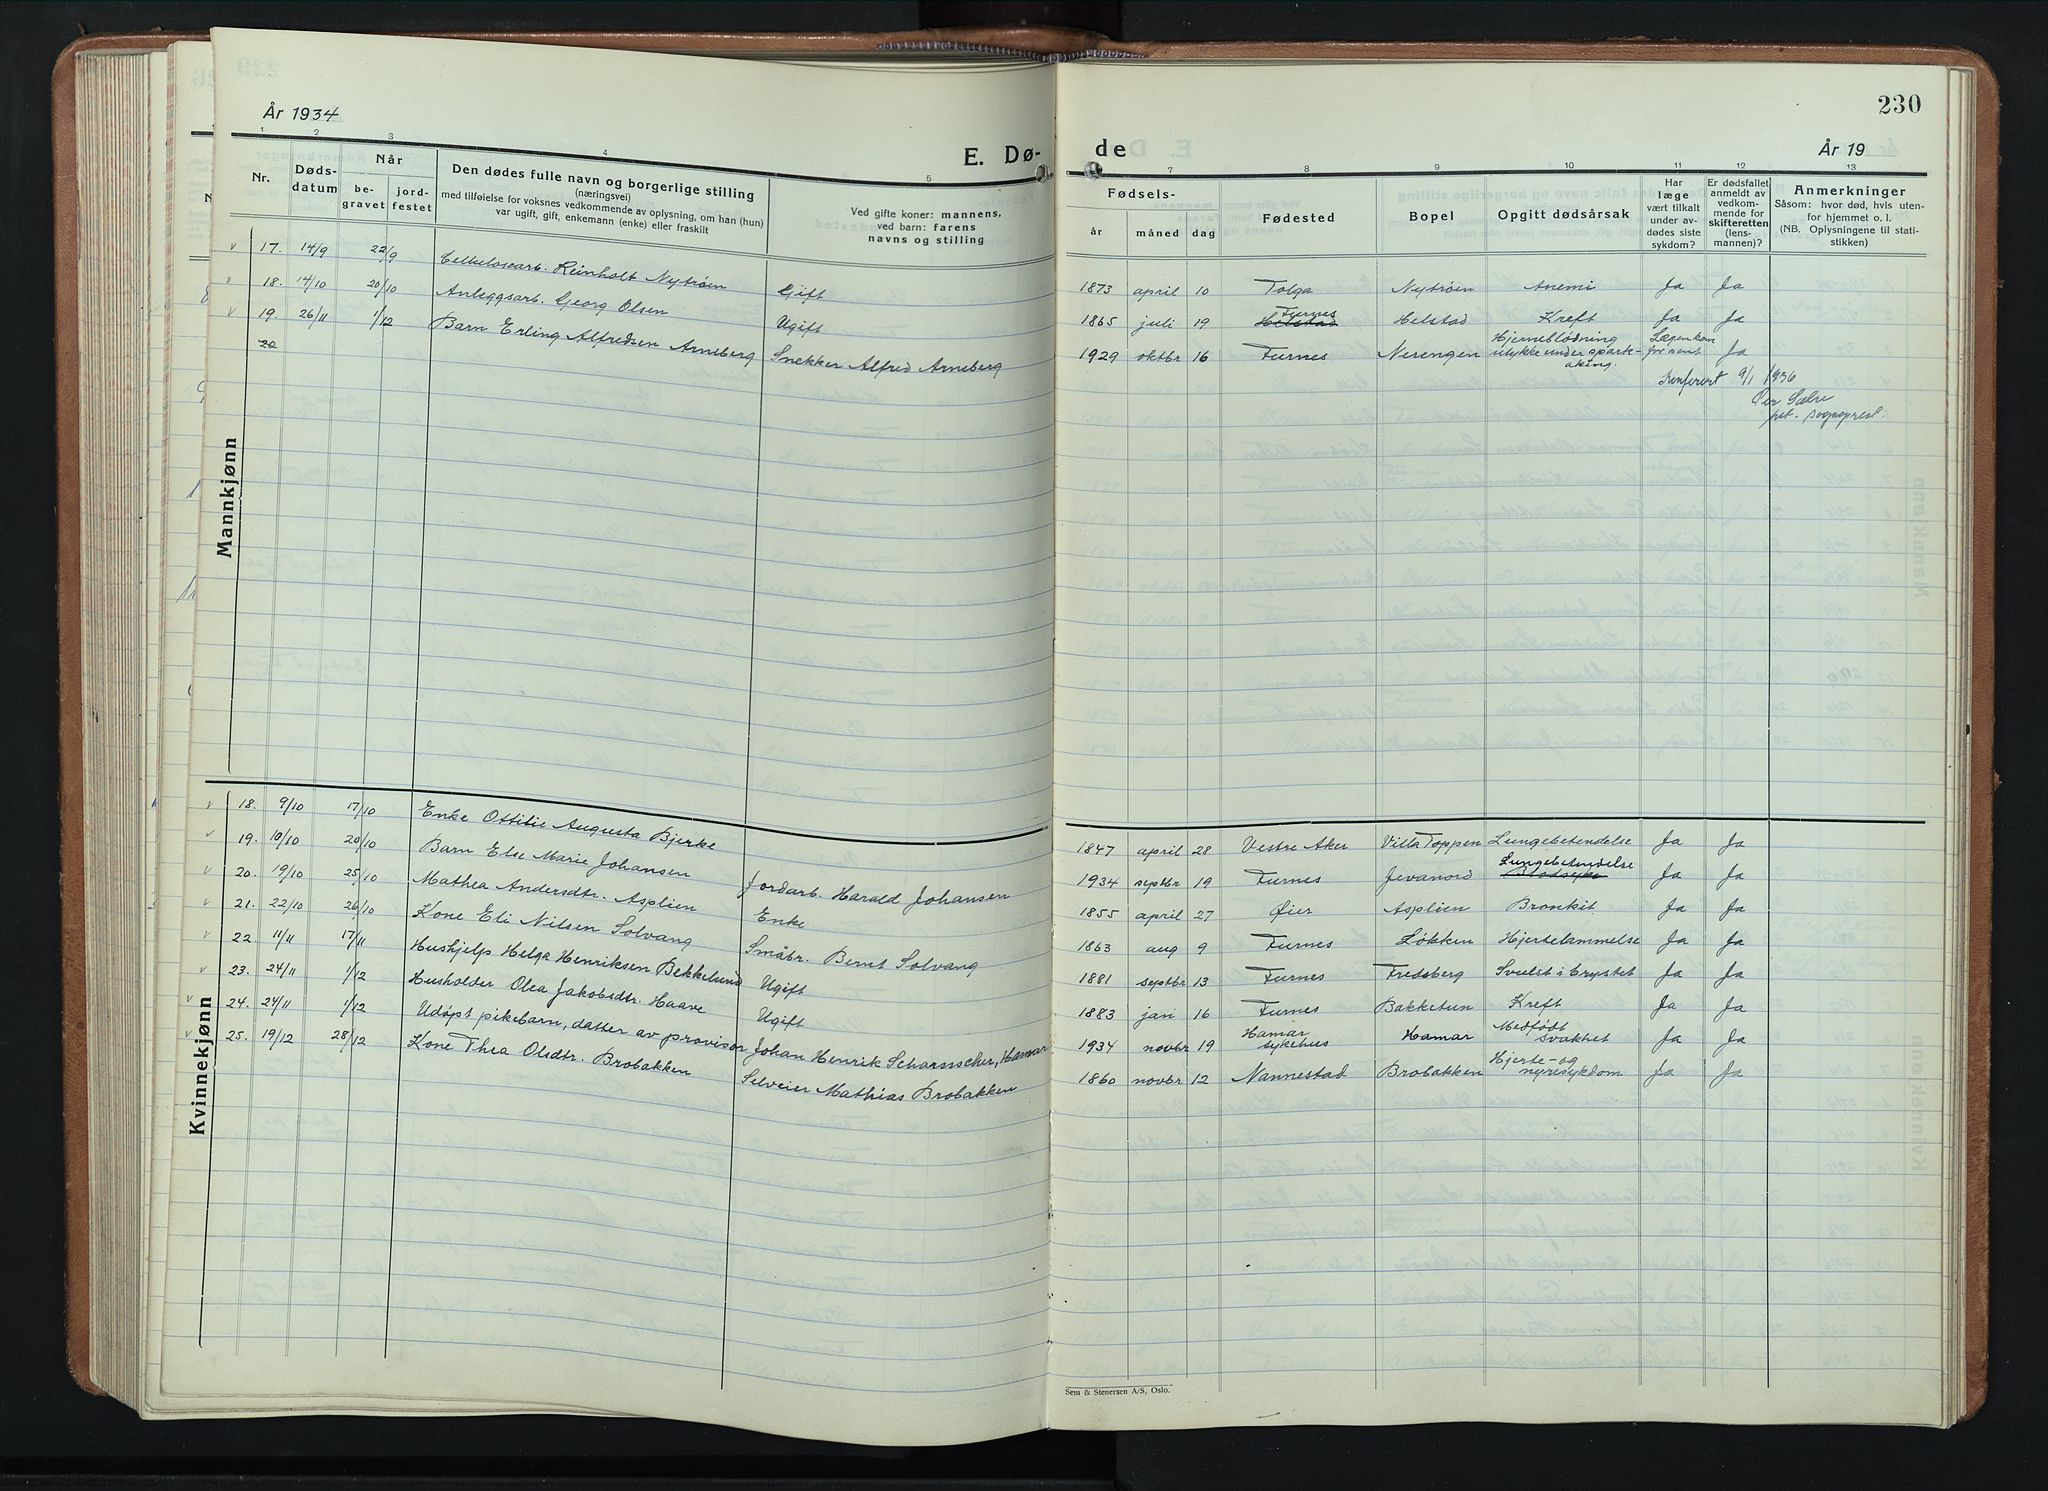 År 1934
E. Dø-
1 2 3 4 5
Nr.
Døds-
datum
Når
be-
gravet
jord-
festet
Den dødes fulle navn og borgerlige stilling
(næringsvei)
med tilføielse for voksnes vedkommende av oplysning, om han (hun)
var ugift, gift, enkemann (enke) eller fraskilt
Ved gifte koner: mannens,
ved barn: farens
navns og stilling
Mannkjønn
v 17. 14/9 22/9 Celluloscarb. Reinholt Nytrøen Gift
v 18. 14/10 20/10 Anleggsarb. Georg Olsen Ugift
v 19. 26/11 1/12 Barn Erling Alfredsen Arneberg Snekker Alfred Arneberg
20
Kvinnekjønn
v 18. 9/10 17/10 Enke Ottilie Augusta Bjerke
v 19. 10/10 20/10 Barn Else Marie Johansen Jordarb. Harald Johansen
v 20. 19/10 25/10 Mathea Andersdtr. Asplien Enke
v 21. 22/10 26/10 Kone Eli Nilsen Solvang Småbr. Bernt Solvang
v 22. 11/11 17/11 Hushjelp Helga Henriksen Bekkelund Ugift
v 23. 24/11 1/12 Husholder Olea Jakobsdtr. Haave Ugift
v 24. 24/11 1/12 Udøpt pikebarn, datter av provisor Johan Henrik Hamar
v 25. 19/12 28/12 Kone Thea Olsdtr. Brobakken Selveier Mathias Brobakken
230
de
År 19
7 8 9 10 11 12 13
Fødsels-
år måned dag
Fødested
Bopel
Opgitt dødsårsak
Har
læge
vært tilkalt
under av-
dødes siste
sykdom?
Er dødsfallet
anmeldt av
vedkom-
mende for
skifteretten
(lens-
mannen)?
Anmerkninger
Såsom: hvor død, hvis uten-
for hjemmet o. l.
(NB. Oplysningene til stati-
stikken)
1873 april 10 Tolga Nytrøen Anemi Ja Ja
Furnes
1865 juli 19 Helstad Helstad Kreft Ja Ja
Hjerneblødning Lægen kom
1929 oktbr 16 Furnes Nerengen ulykke under spark- for sent Ja
aking.
Konferert 9/1 1936
Sæbre
sogneprest.
1847 april 28 Vestre Aker Villa Toppen Lungebetendelse Ja Ja
Lungebetendelse
1934 septbr 19 Furnes Jevanord Blodsyke Ja Ja
1855 april 27 Øier Asplien Bronkit Ja Ja
1863 aug 9 Furnes Løkken Hjertelammelse Ja Ja
1881 septbr 13 Furnes Fredsberg Svulst i brystet Ja Ja
1883 jan 16 Furnes Bakketun Kreft Ja Ja
Hamar Medfødt
1934 novbr 19 sykehus Hamar svakhet Ja Ja
Hjerte- og
1860 novbr 12 Nannestad Brobakken nyresykdom Ja Ja
Sem & Stenersen A/S, Oslo.